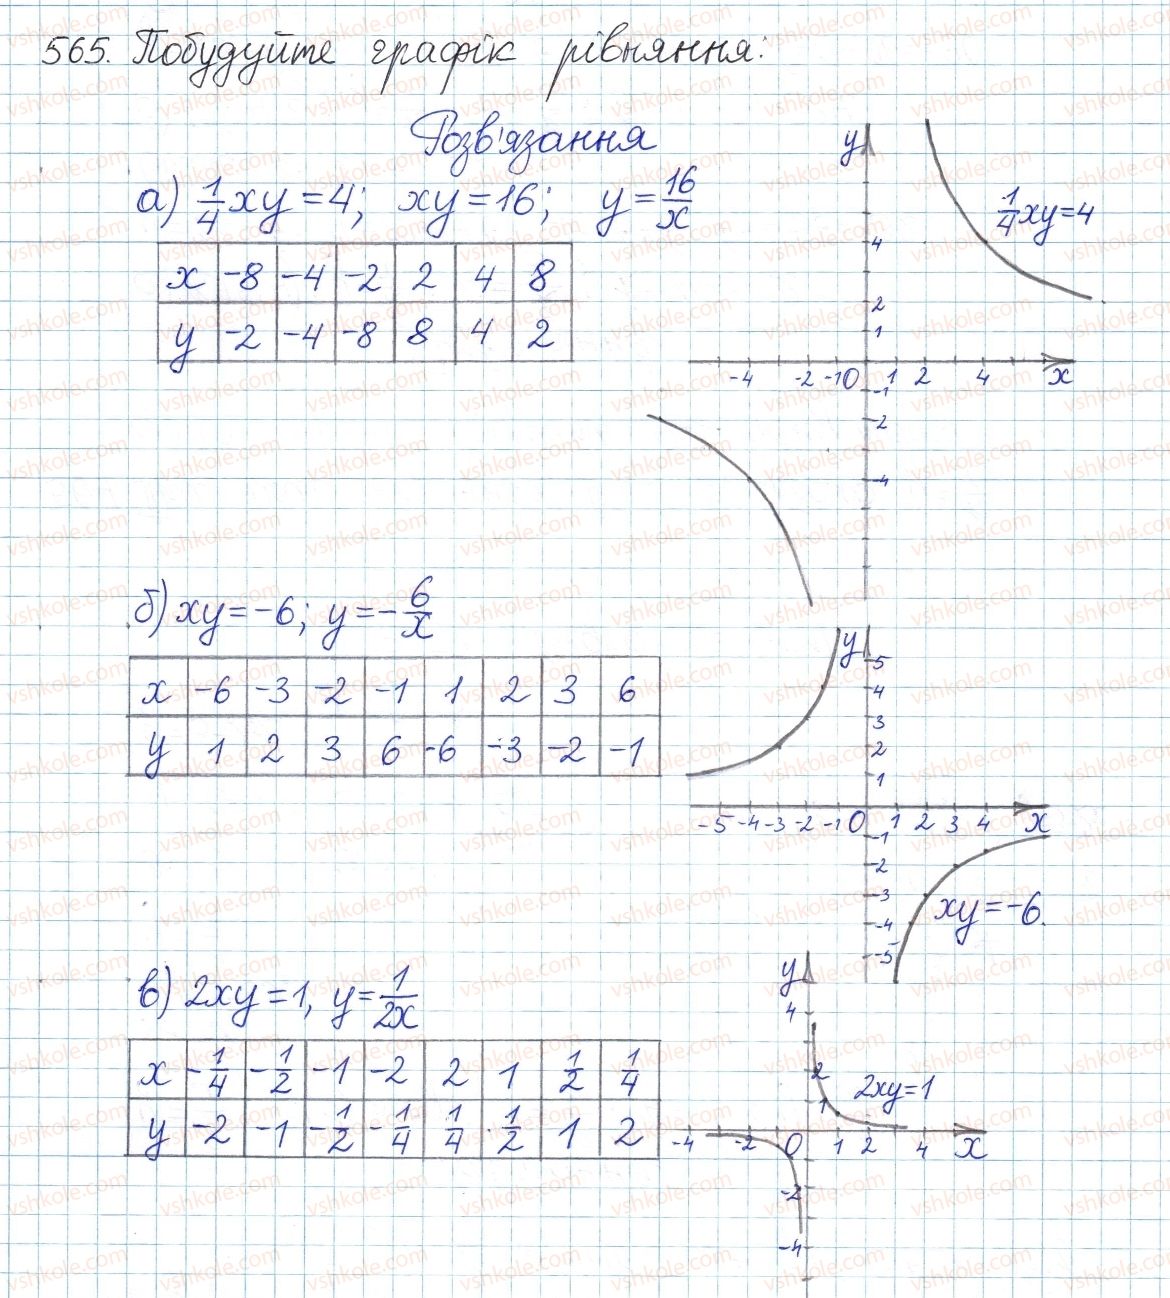 565. Побудуйте графік рівняння:
Розв'язання
а) 1/4 xy = 4; xy = 16; y = 16/x
x -8 -4 -2 2 4 8
y -2 -4 -8 8 4 2
y
1/4 xy = 4
4
2
1
-4 -2 -1 0 1 2 4 x
-1
-2
-4
б) xy = -6; y = -6/x
x -6 -3 -2 -1 1 2 3 6
y 1 2 3 6 -6 -3 -2 -1
y
5
4
3
2
1
-5 -4 -3 -2 -1 0 1 2 3 4 x
-1
-2
-3
-4
-5
xy = -6.
в) 2xy = 1, y = 1/2x
x -1/4 -1/2 -1 -2 2 1 1/2 1/4
y -2 -1 -1/2 -1/4 1/4 1/2 1 2
y
4
2
1
2xy = 1
-4 -2 0 1 2 4 x
-2
-4
vshkole.com